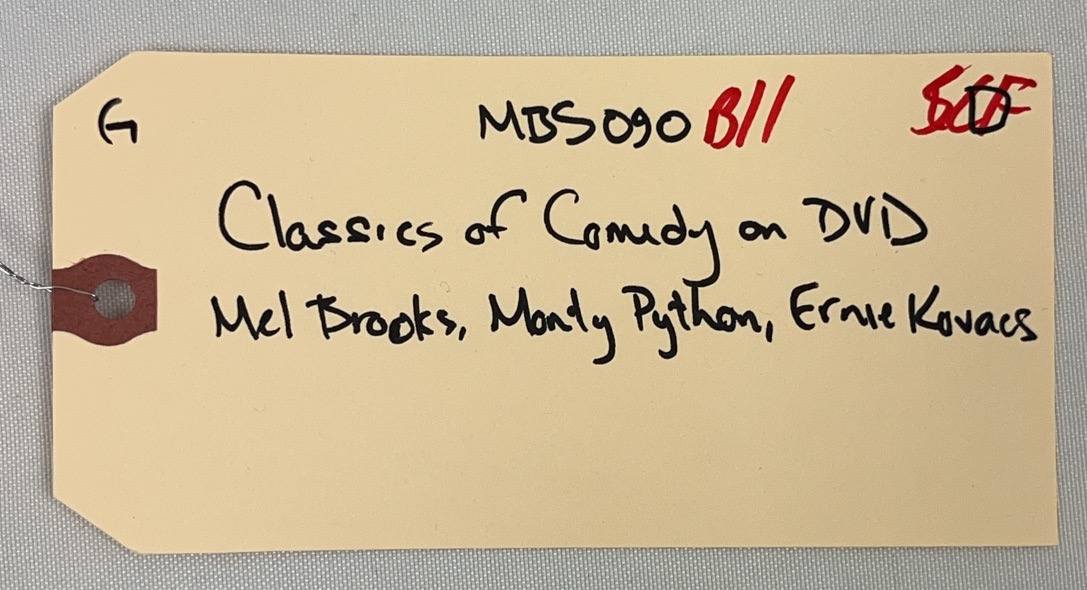 G MBS090 B11
Classics of Comedy on DVD
Mel Brooks, Monty Python, Ernie Kovacs